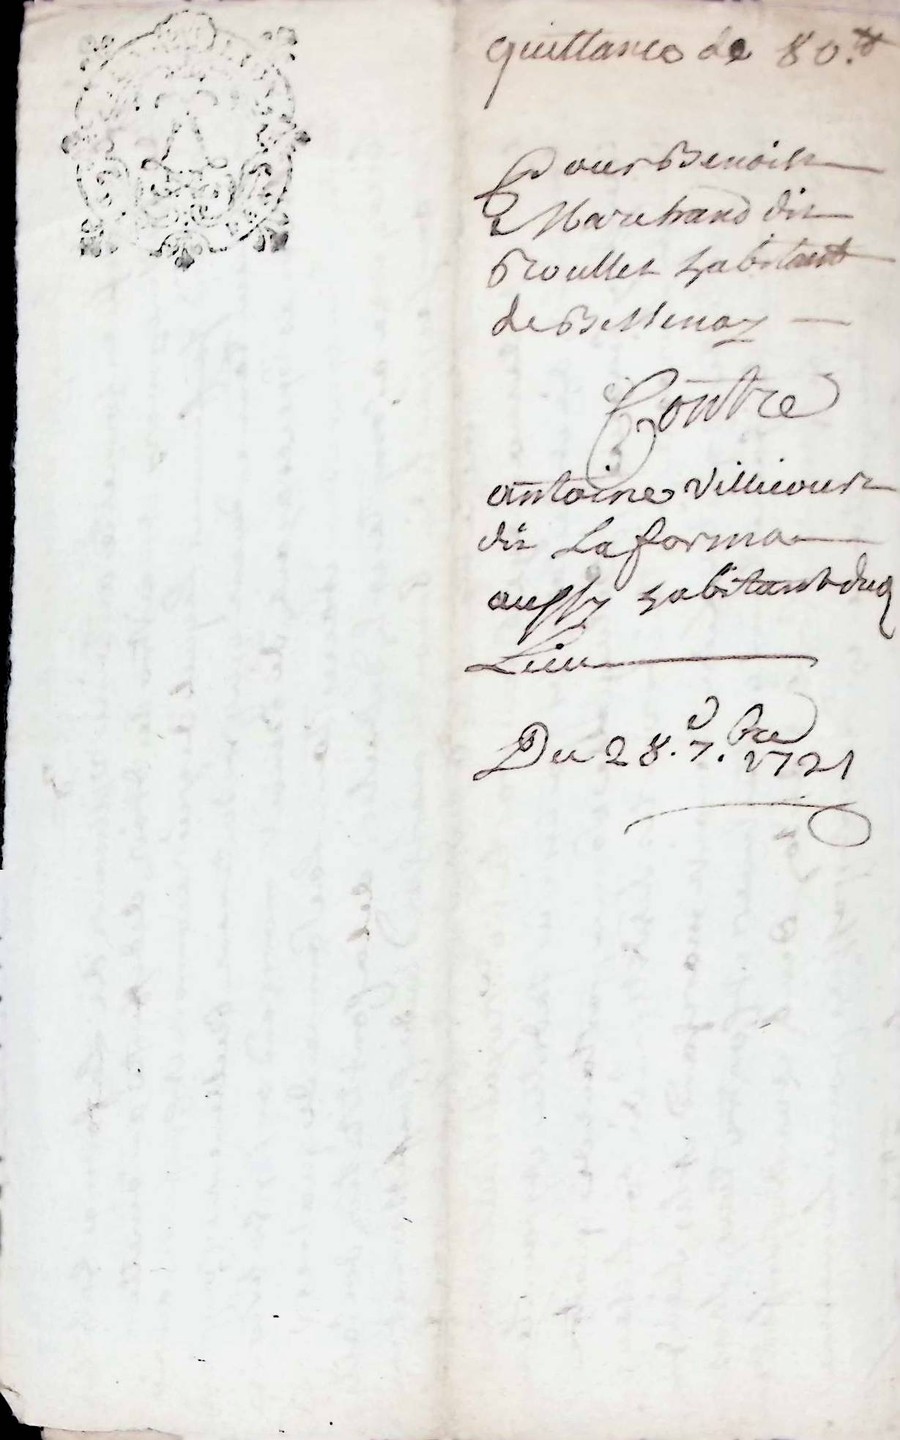 quittance de 80.ᵗᵗ
Pour Benoist
Marchand dit
Roullet habitant
de Bellenay
Contre
antoine Villecourt
dit Laforma
aussy habitant dud
Lieu
Du 28.ᵉ 7.bre 1721